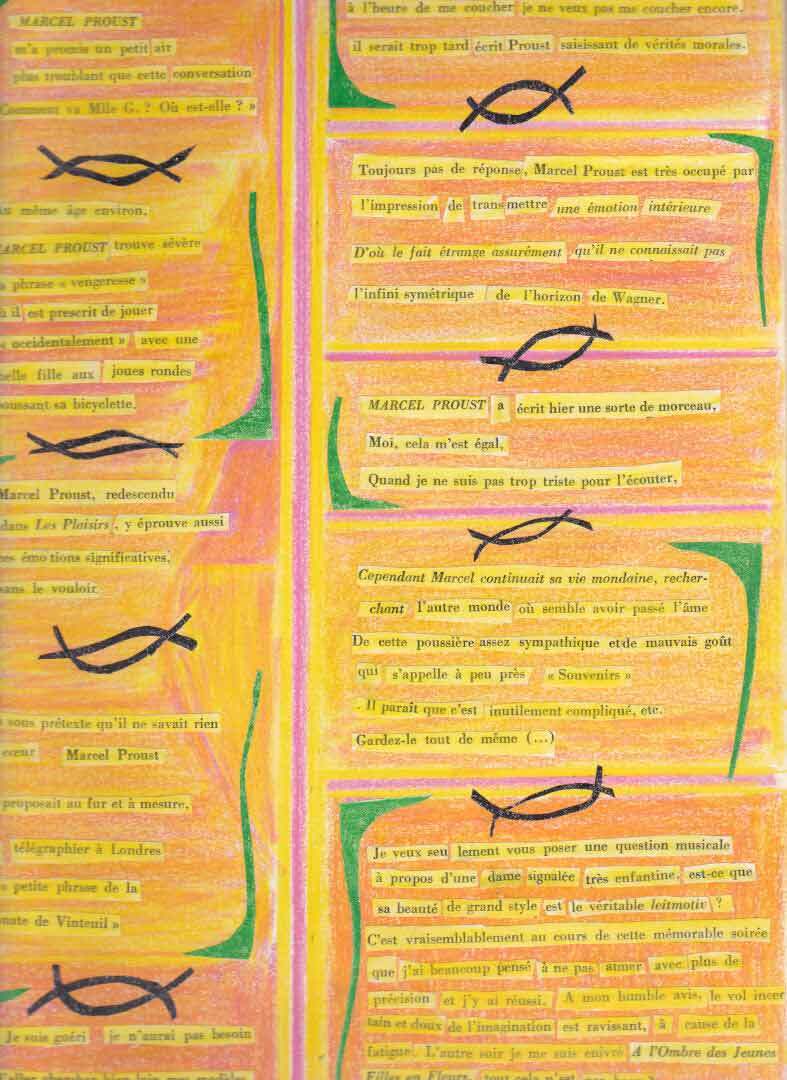 MARCEL PROUST
m'a promis un petit air
plus troublant que cette conversation
Comment va Mlle G. ? Où est-elle ? »
au même âge environ,
MARCEL PROUST trouve sévère
phrase « vengeresse »
il est prescrit de jouer
« occidentalement » avec une
belle fille aux joues rondes
poussant sa bicyclette.
Marcel Proust, redescendu
dans Les Plaisirs, y éprouve aussi
ces émotions significatives,
sans le vouloir.
sous prétexte qu'il ne savait rien
cœur Marcel Proust
proposait au fur et à mesure,
télégraphier à Londres
petite phrase de la
sonate de Vinteuil »
Je suis guéri je n'aurai pas besoin
à l'heure de me coucher je ne veux pas me coucher encore.
il serait trop tard écrit Proust saisissant de vérités morales.
Toujours pas de réponse, Marcel Proust est très occupé par
l'impression de transmettre une émotion intérieure
D'où le fait étrange assurément qu'il ne connaissait pas
l'infini symétrique de l'horizon de Wagner.
MARCEL PROUST a écrit hier une sorte de morceau,
Moi, cela m'est égal,
Quand je ne suis pas trop triste pour l'écouter,
Cependant Marcel continuait sa vie mondaine, recher-
chant l'autre monde où semble avoir passé l'âme
De cette poussière assez sympathique et de mauvais goût
qui s'appelle à peu près « Souvenirs »
. Il paraît que c'est inutilement compliqué, etc.
Gardez-le tout de même (...)
Je veux seulement vous poser une question musicale
à propos d'une dame signalée très enfantine, est-ce que
sa beauté de grand style est le véritable leitmotiv ?
C'est vraisemblablement au cours de cette mémorable soirée
que j'ai beaucoup pensé à ne pas aimer avec plus de
précision et j'y ai réussi. A mon humble avis, le vol incer
tain et doux de l'imagination est ravissant, à cause de la
fatigue. L'autre soir je me suis enivré A l'Ombre des Jeunes
Filles en Fleurs, tout cela n'est